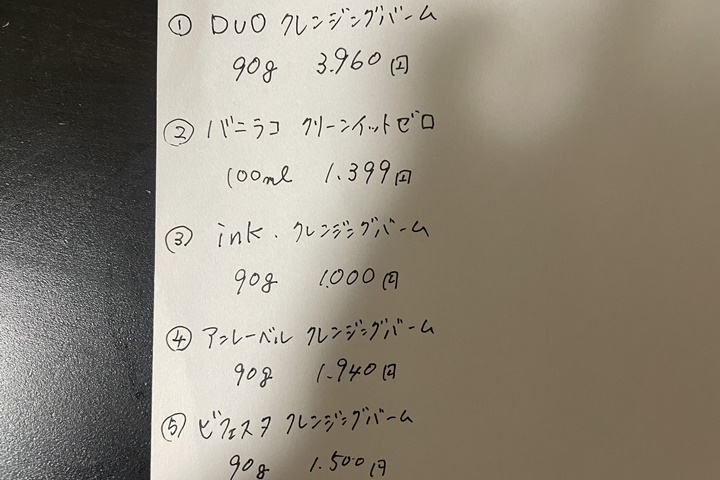 ① DUO クレンジングバーム
90g 3.960円
② バニラコ クリーンイットゼロ
100ml 1.399円
③ ink. クレンジングバーム
90g 1.000円
④ アンレーベル クレンジングバーム
90g 1.940円
⑤ ビフェスタ クレンジングバーム
90g 1.500円